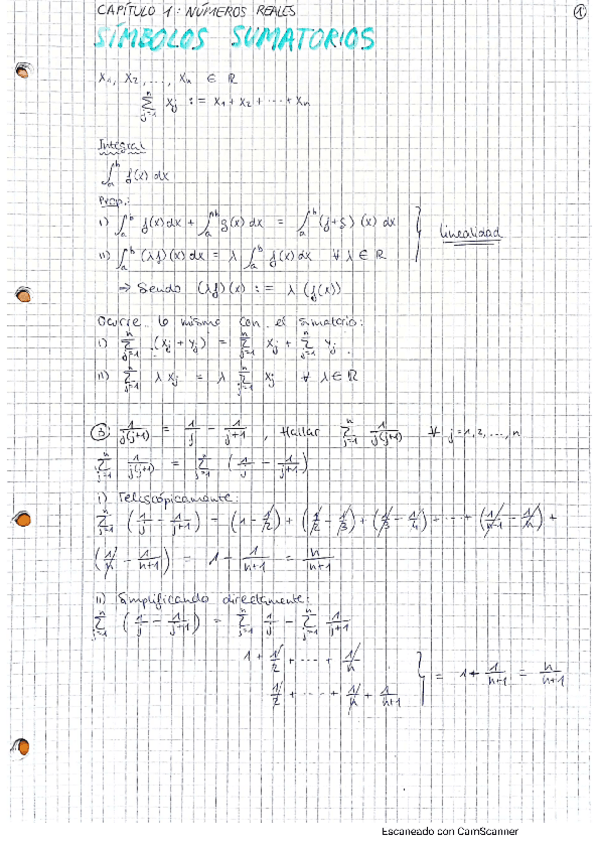 CAPÍTULO 1: NÚMEROS REALES ①
SÍMBOLOS SUMATORIOS
x₁, x₂, ..., xₙ ∈ ℝ
∑ⱼ₌₁ⁿ xⱼ := x₁ + x₂ + ... + xₙ
Integral
∫ₐᵇ f(x) dx
Prop.:
i) ∫ₐᵇ f(x) dx + ∫ₐᵇ g(x) dx = ∫ₐᵇ (f+g)(x) dx
ii) ∫ₐᵇ (λf)(x) dx = λ ∫ₐᵇ f(x) dx ∀ λ ∈ ℝ } linealidad
→ Siendo (λf)(x) := λ (f(x))
Ocurre lo mismo con el sumatorio:
i) ∑ⱼ₌₁ⁿ (xⱼ + yⱼ) = ∑ⱼ₌₁ⁿ xⱼ + ∑ⱼ₌₁ⁿ yⱼ
ii) ∑ⱼ₌₁ⁿ λ xⱼ = λ ∑ⱼ₌₁ⁿ xⱼ ∀ λ ∈ ℝ
③ 1/j(j+1) = 1/j - 1/(j+1), Hallar ∑ⱼ₌₁ⁿ 1/j(j+1) ∀ j = 1, 2, ..., n
∑ⱼ₌₁ⁿ 1/j(j+1) = ∑ⱼ₌₁ⁿ (1/j - 1/(j+1))
i) Telescópicamente:
∑ⱼ₌₁ⁿ (1/j - 1/(j+1)) = (1 - 1/2) + (1/2 - 1/3) + (1/3 - 1/4) + ... + (1/(n-1) - 1/n) +
(1/n - 1/(n+1)) = 1 - 1/(n+1) = n/(n+1)
ii) Simplificando directamente:
∑ⱼ₌₁ⁿ (1/j - 1/(j+1)) = ∑ⱼ₌₁ⁿ 1/j - ∑ⱼ₌₁ⁿ 1/(j+1)
1 + 1/2 + ... + 1/n
1/2 + ... + 1/n + 1/(n+1) } = 1 - 1/(n+1) = n/(n+1)
Escaneado con CamScanner